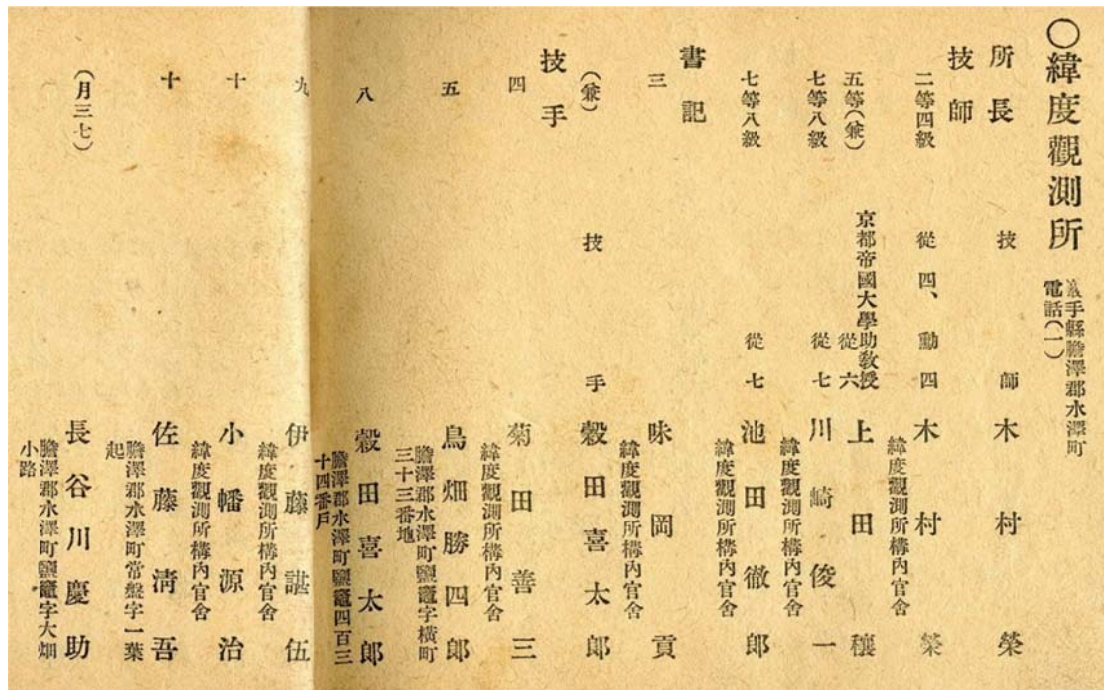 〇緯度觀測所
岩手縣膽澤郡水澤町
電話(一)
所長 技師 木村榮
技師
二等四級 從四、勳四 木村榮
緯度觀測所構內官舍
五等(兼) 京都帝國大學助教授
從六 上田穰
七等八級 從七 川崎俊一
緯度觀測所構內官舍
七等八級 從七 池田徹郎
緯度觀測所構內官舍
書記
三 味岡貢
緯度觀測所構內官舍
(兼) 技手 穀田喜太郎
技手
四 菊田善三
緯度觀測所構內官舍
五 鳥畑勝四郎
膽澤郡水澤町鹽竈字橫町
三十三番地
八 穀田喜太郎
膽澤郡水澤町鹽竈四百三
十四番戶
九 伊藤諶伍
緯度觀測所構內官舍
十 小幡源治
緯度觀測所構內官舍
十 佐藤淸吾
膽澤郡水澤町常盤字一葉
起
(月三七) 長谷川慶助
膽澤郡水澤町鹽竈字大畑
小路